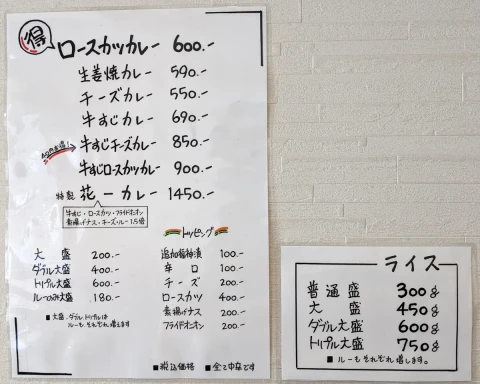 得 ロースカツカレー 600.-
生姜焼カレー 590.-
チーズカレー 550.-
牛すじカレー 690.-
牛すじチーズカレー 850.-
牛すじロースカツカレー 900.-
特製 花一カレー 1450.-
牛すじ・ロースカツ・フライドオニオン
素揚げナス・チーズ・ルー1.5倍
大盛 200.-
ダブル大盛 400.-
トリプル大盛 600.-
ルーのみ大盛 180.-
■大盛、ダブル、トリプルは
ルーもそれぞれ増します
トッピング
追加福神漬 100.-
辛口 100.-
チーズ 200.-
ロースカツ 400.-
素揚げナス 200.-
フライドオニオン 200.-
■税込価格 ■全て中辛です
ライス
普通盛 300g
大盛 450g
ダブル大盛 600g
トリプル大盛 750g
■ルーもそれぞれ増します。